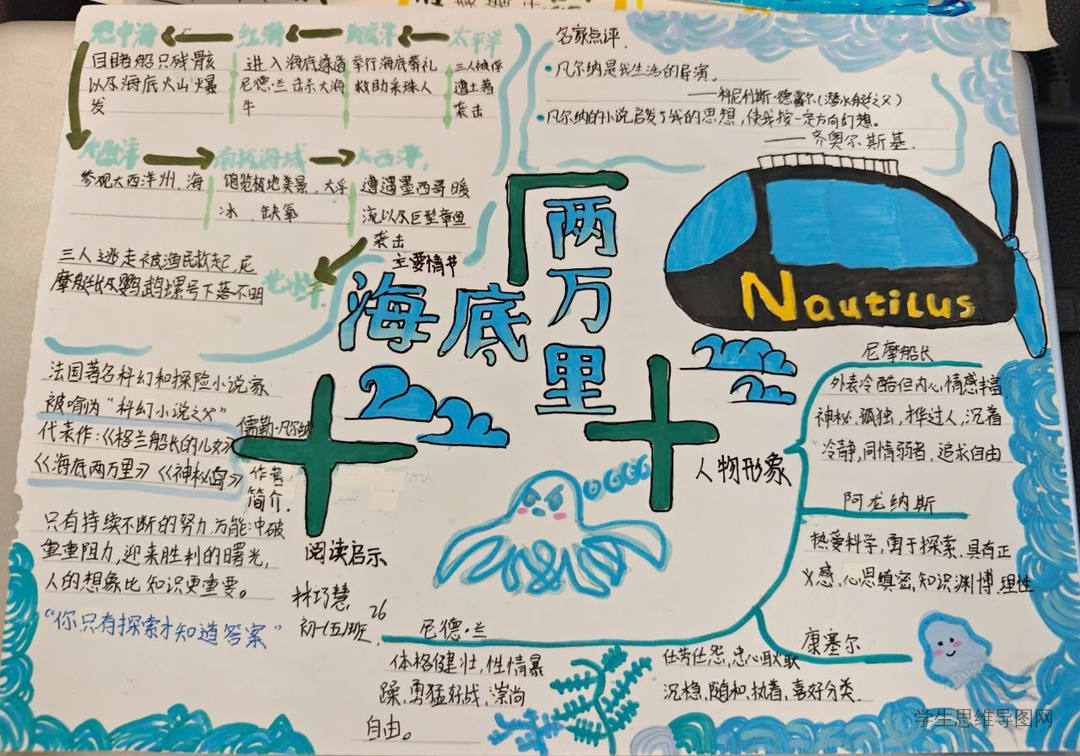 地中海
红海
印度洋
太平洋
目睹船只残骸
以及海底火山爆
发
进入海底遂道
尼德·兰击杀大海
牛
举行海底葬礼
救助采珠人
三人被俘
遭土著
袭击
大西洋
南极海域
大西洋
参观大西洋州,海
饱览极地美景,大浮
冰,缺氧
遭遇墨西哥暖
流以及巨型章鱼
袭击
主要情节
北冰洋
三人逃走被渔民救起,尼
摩艇长及鹦鹉螺号下落不明
名家点评.
凡尔纳是我生活的导演。
——科尼利斯-德雷尔(潜水艇之父)
凡尔纳的小说启发了我的思想,使我按一定方向幻想。
——齐奥尔斯基.
海底两万里
Nautilus
法国著名科幻和探险小说家
被喻为“科幻小说之父”
代表作:《格兰船长的儿女》
《海底两万里》《神秘岛》
儒勒·凡尔纳
作者
简介.
只有持续不断的努力,方能冲破
重重阻力,迎来胜利的曙光,
人的想象比知识更重要。
“你只有探索才知道答案”
阅读启示
林巧慧 26
初一(五)班
人物形象
尼摩船长
外表冷酷但内心情感丰富
神秘,孤独,才华过人,沉着
冷静,同情弱者,追求自由
阿龙纳斯
热爱科学,勇于探索,具有正
义感,心思缜密,知识渊博,理性
康塞尔
任劳任怨,忠心耿耿
沉稳,随和,执着,喜好分类.
尼德·兰
体格健壮,性情暴
躁,勇猛好战,崇尚
自由。
学生思维导图网